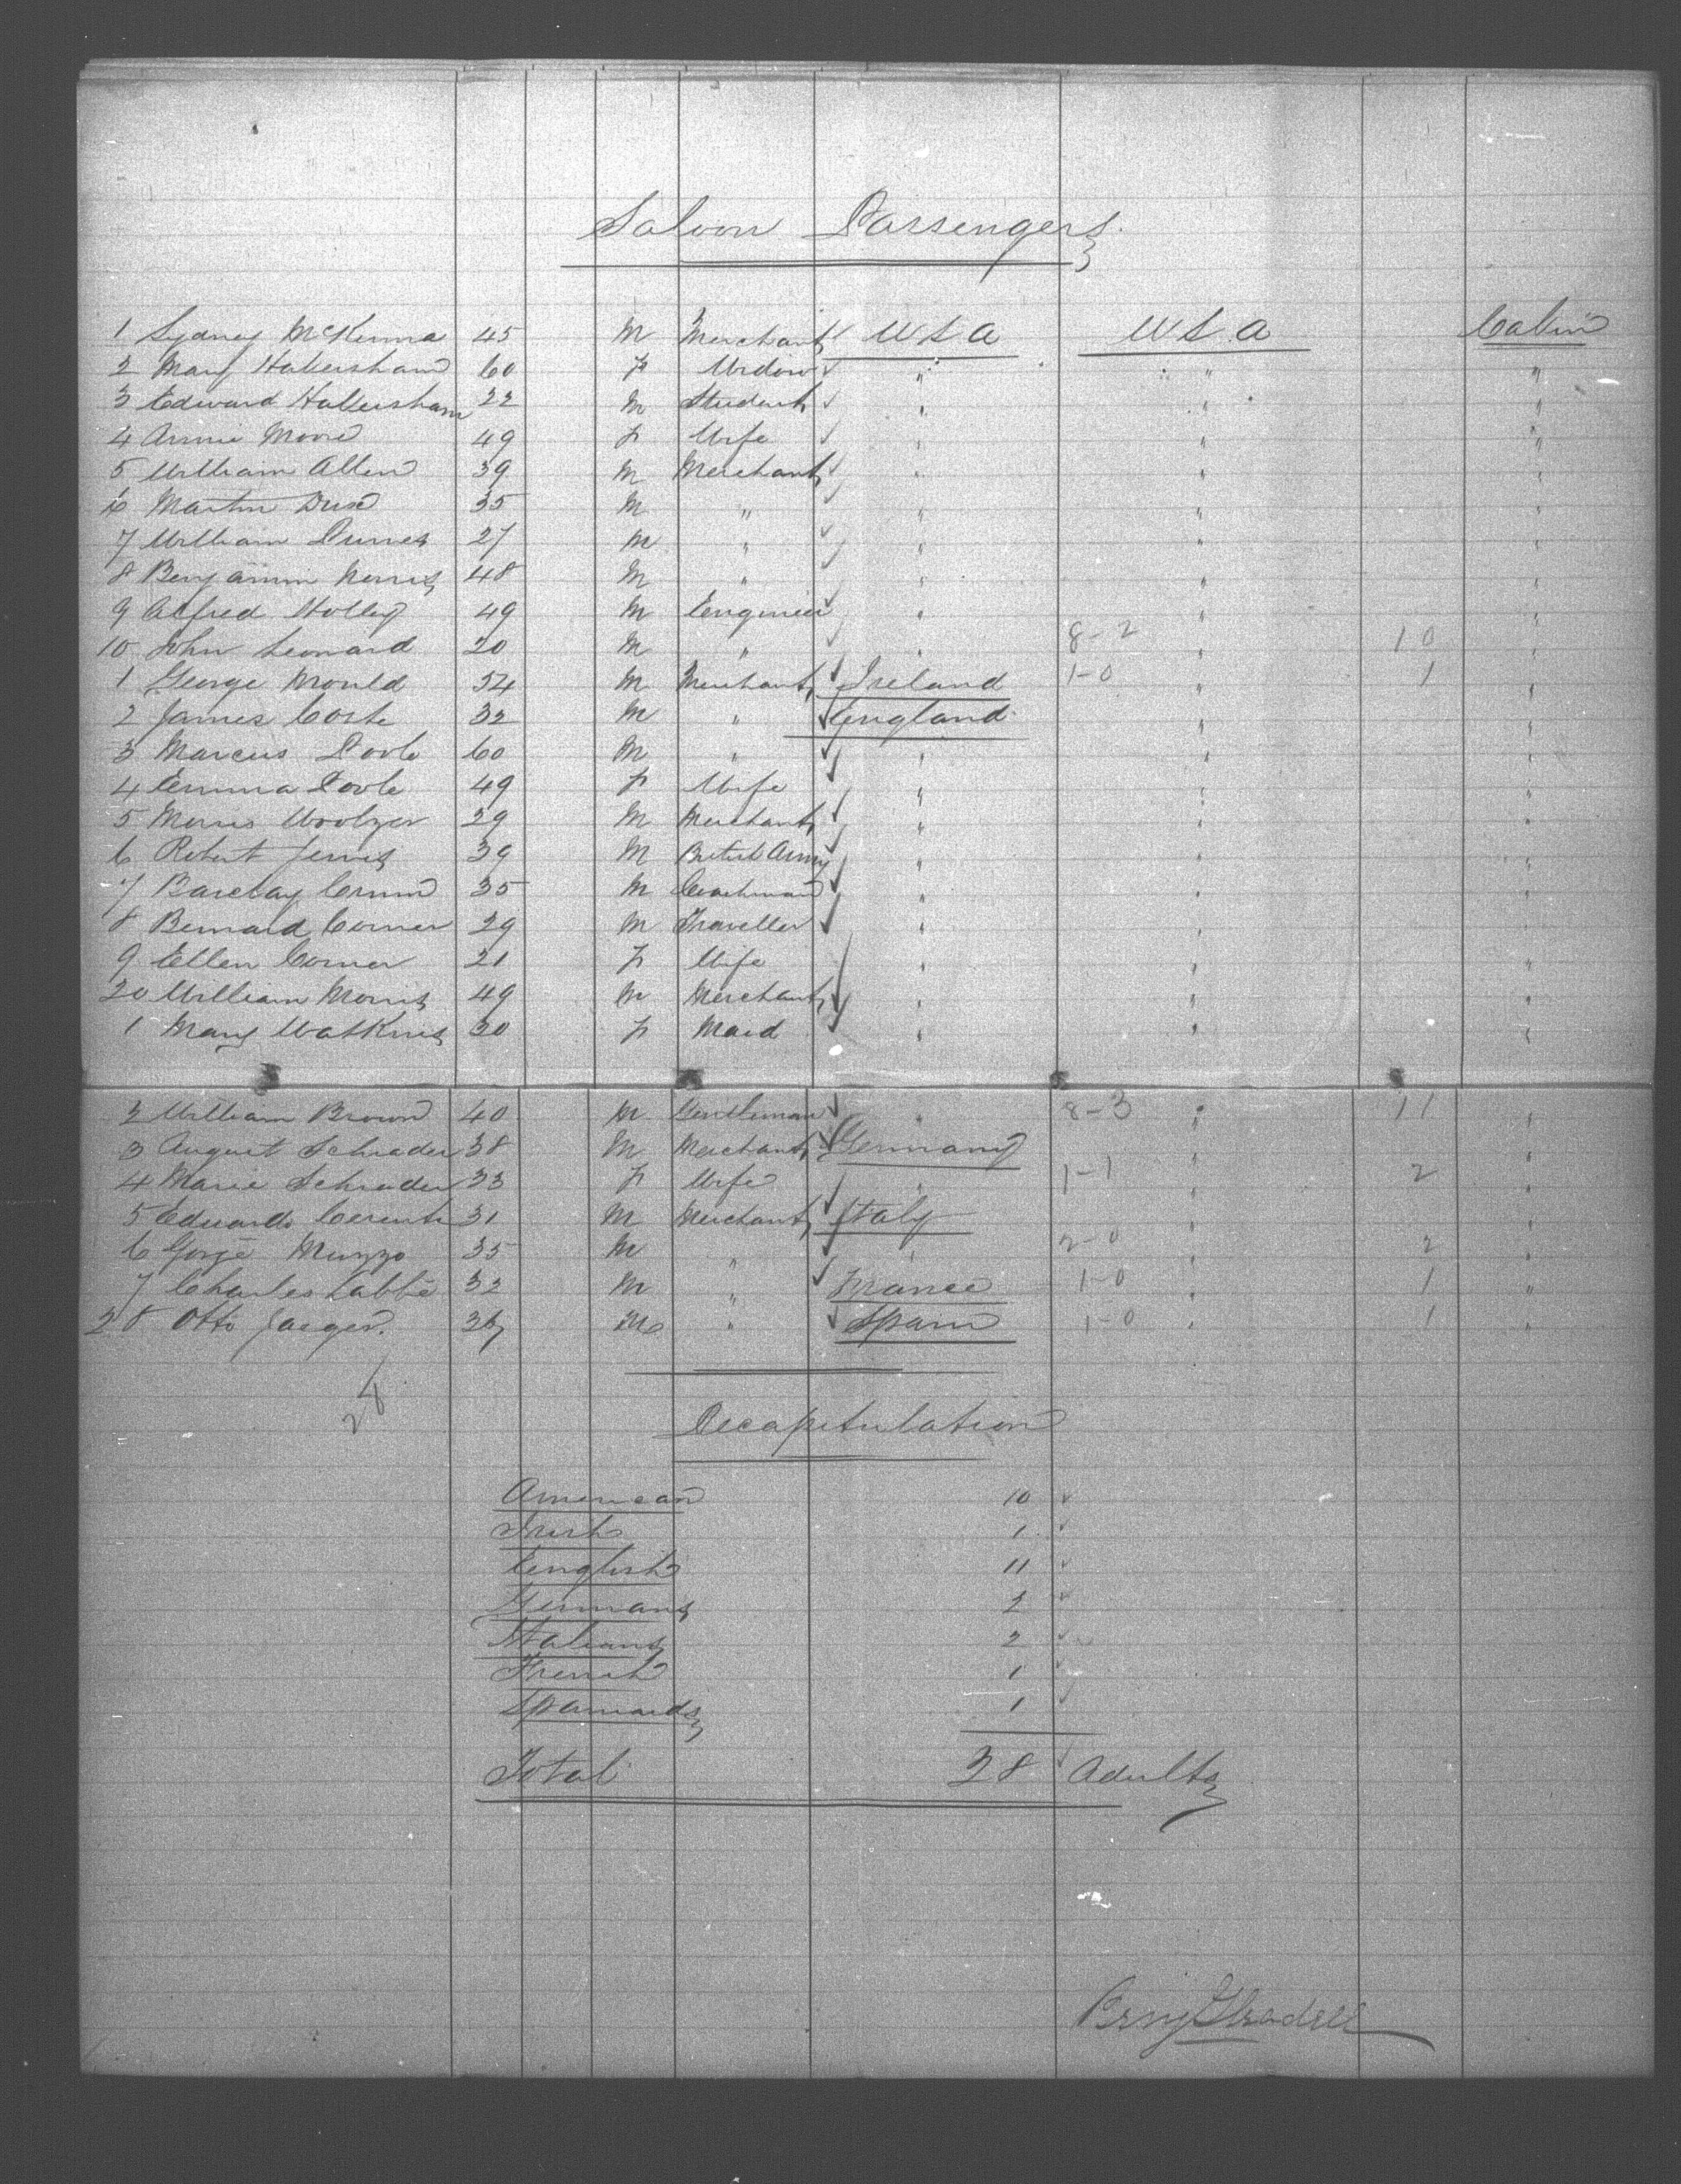 Saloon Passengers
1 Sydney McKenna 45 M Merchant U S A U S A Cabin
2 Mary Habersham 60 F Widow " " "
3 Edward Habersham 22 M Student " " "
4 Annie Moore 49 F Wife " " "
5 William Allen 39 M Merchant " " "
6 Martin 35 M " " " "
7 William 27 M " " " "
8 Benjamin Norris 48 M " " " "
9 Alfred Holley 49 M Engineer " " "
10 John Leonard 20 M " " 8-2 " 10 "
1 George Mould 54 M Merchant Ireland 1-0 " 1 "
2 James Coste 32 M " England " "
3 Marcus Poole 60 M " " " "
4 Emma Poole 49 F Wife " " "
5 Morris 29 M Merchant " " "
6 Robert Jervis 39 M British Army " " "
7 Barclay Crum 35 M Coachman " " "
8 Bernard Corner 29 M Traveller " " "
9 Ellen Corner 21 F Wife " " "
20 William Morris 49 M Merchant " " "
1 Mary Watkins 30 F Maid " " "
2 William Brown 40 M Gentleman " 8-3 " 11 "
3 August Schrader 38 M Merchant Germany " "
4 Marie Schrader 33 F Wife " 1-1 " 2 "
5 Eduardo 31 M Merchant Italy " "
6 Gorge Muzzo 35 M " " 2-0 " 2 "
7 Charles Labbé 32 M " France 1-0 " 1 "
28 Otto Jaeger. M " Spain 1-0 " 1 "
28
Recapitulation
American 10
Irish 1
English 11
Germans 2
Italians 2
French 1
Spaniards 1
Total 28 Adults
Benj Gleadell